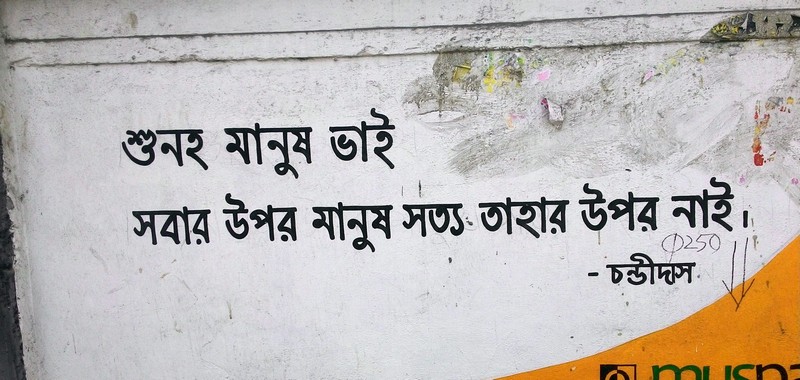 শুনহ মানুষ ভাই
সবার উপর মানুষ সত্য তাহার উপর নাই।
Φ250
- চন্ডীদাস